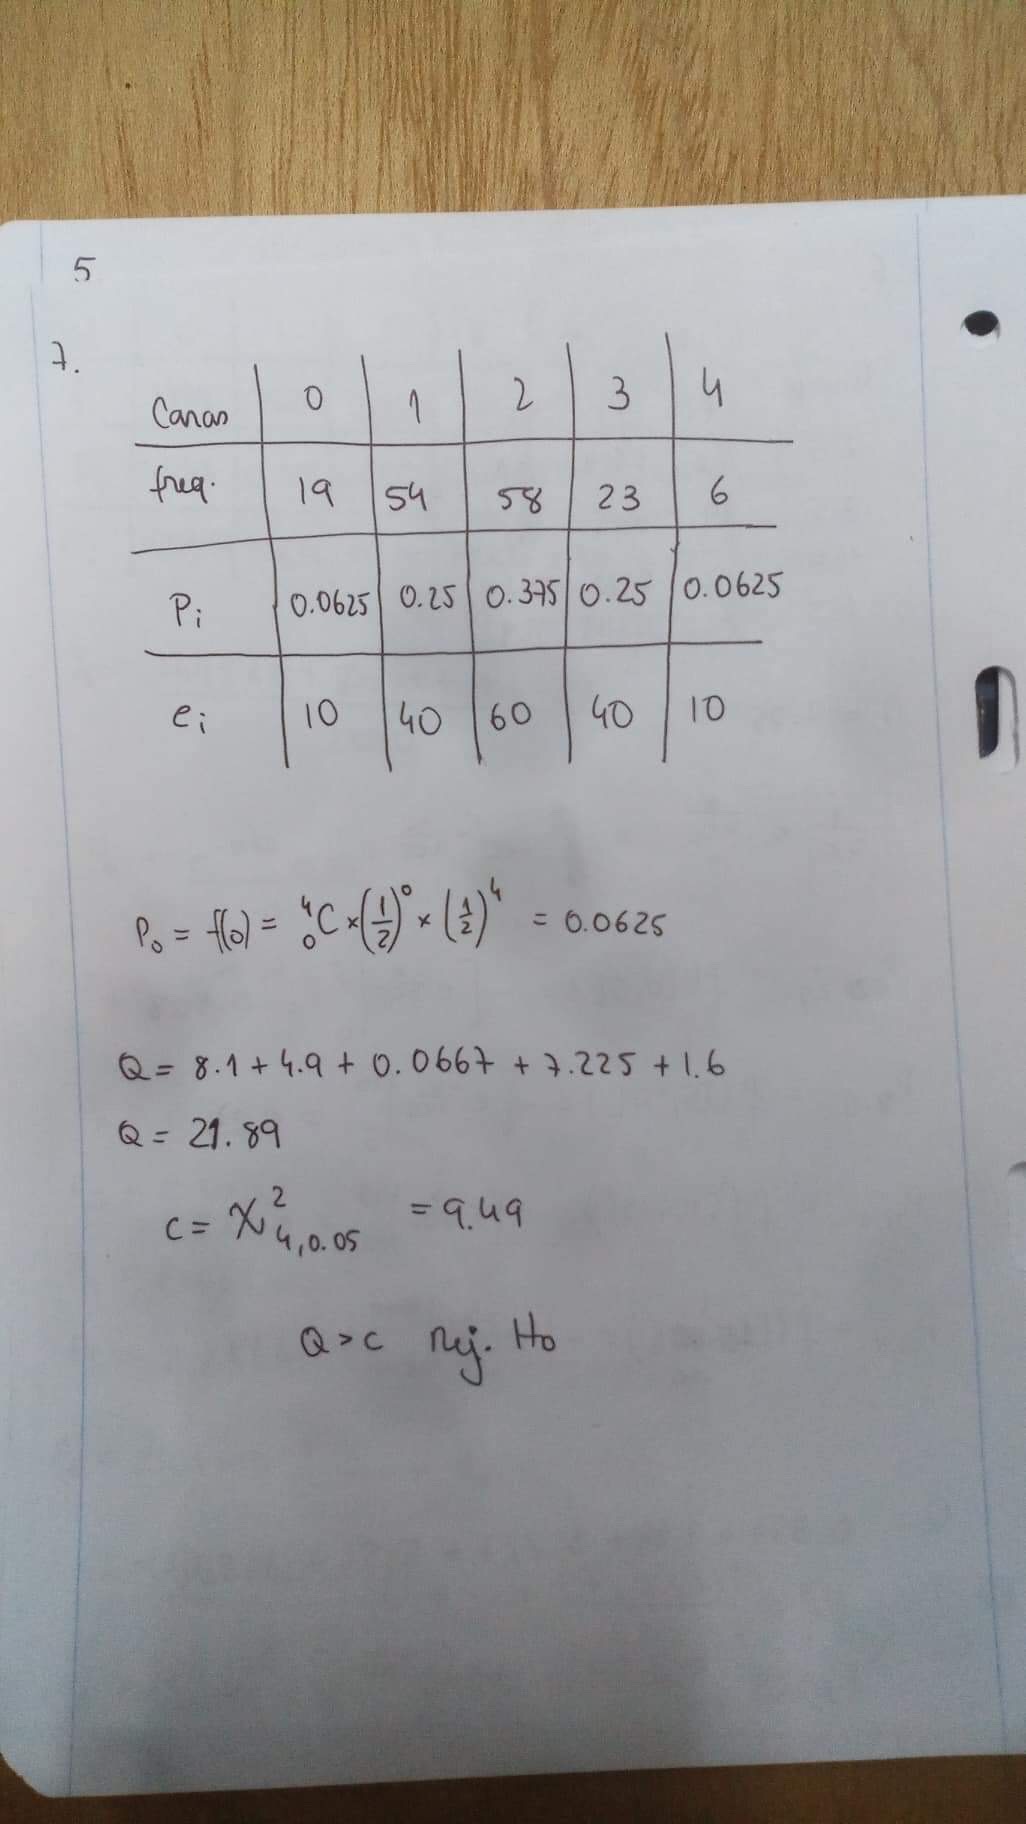 5
7.
Caras 0 1 2 3 4
freq. 19 54 58 23 6
Pi 0.0625 0.25 0.375 0.25 0.0625
ei 10 40 60 40 10
P₀ = f(0) = ⁴₀C × (1/2)⁰ × (1/2)⁴ = 0.0625
Q = 8.1 + 4.9 + 0.0667 + 7.225 + 1.6
Q = 21.89
c = χ²₄,₀.₀₅ = 9.49
Q > c Rej. H₀